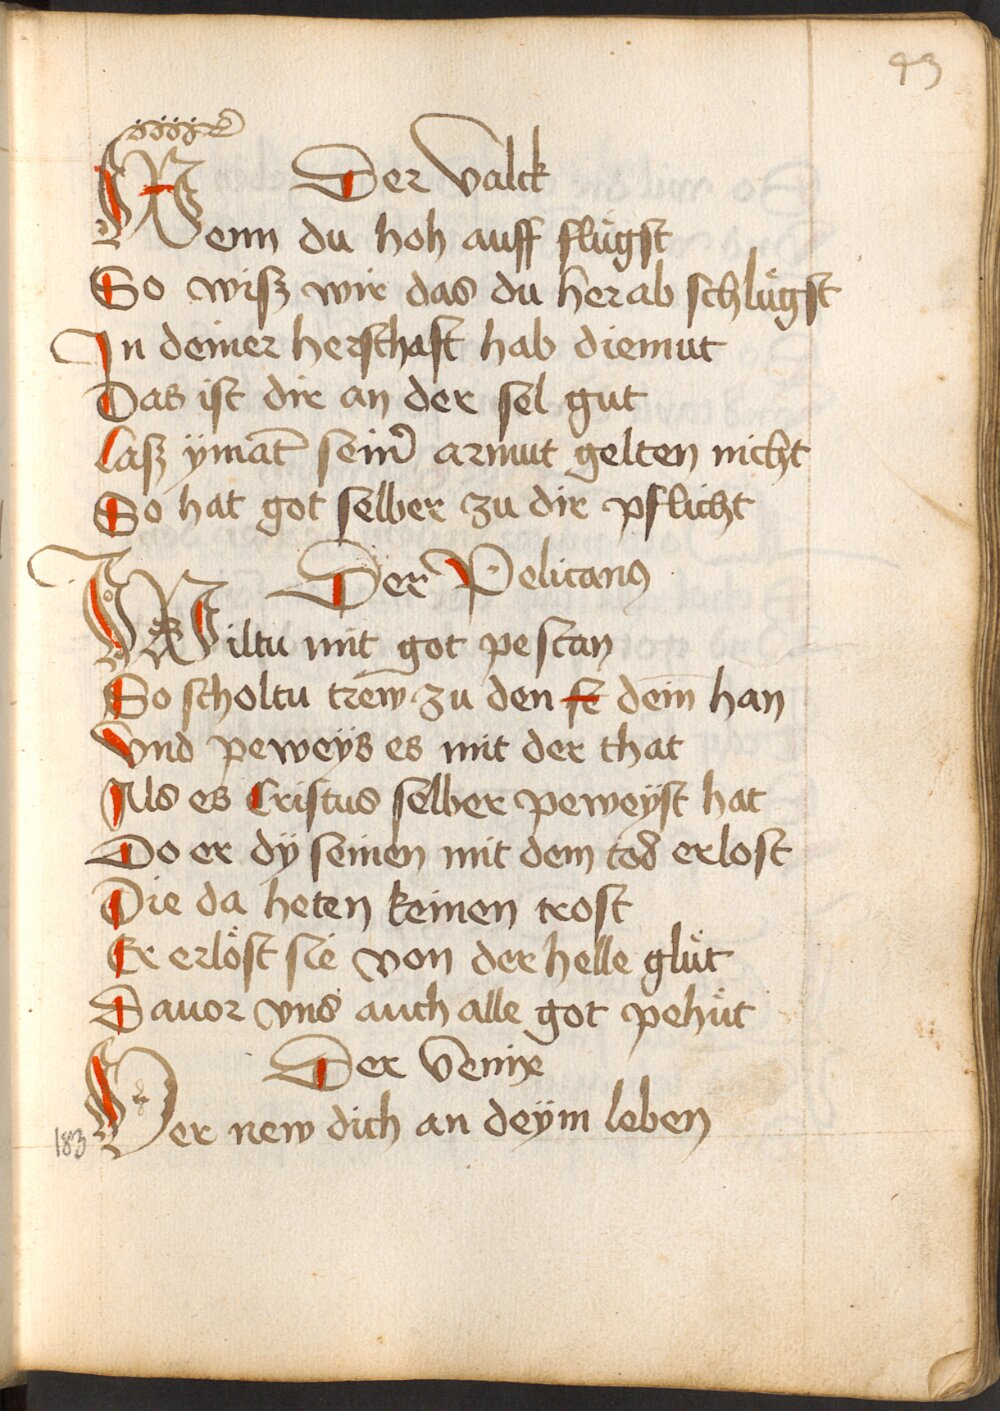 93
Der valck
Wenn du hoh auff flůgst
So wisz wir das du herab schlůgst
In deiner herschaft hab diemut
Das ist dir an der sel gut
Lasz ymāt sein̄ armut gelten nicht
So hat got selber zu dir pflicht
Der Pelicanus
Wiltu mit got pestan
So scholtu trew̄ zu den dein han
Vnd peweÿs es mit der that
Als es Cristus selber peweÿst hat
Do er dÿ seinen mit dem tod erlost
Die da heten keinen trost
Er erlöst sie von der helle glüt
Dauor vns auch alle got pehüt
Der venix
Ver new dich an deÿm leben
183